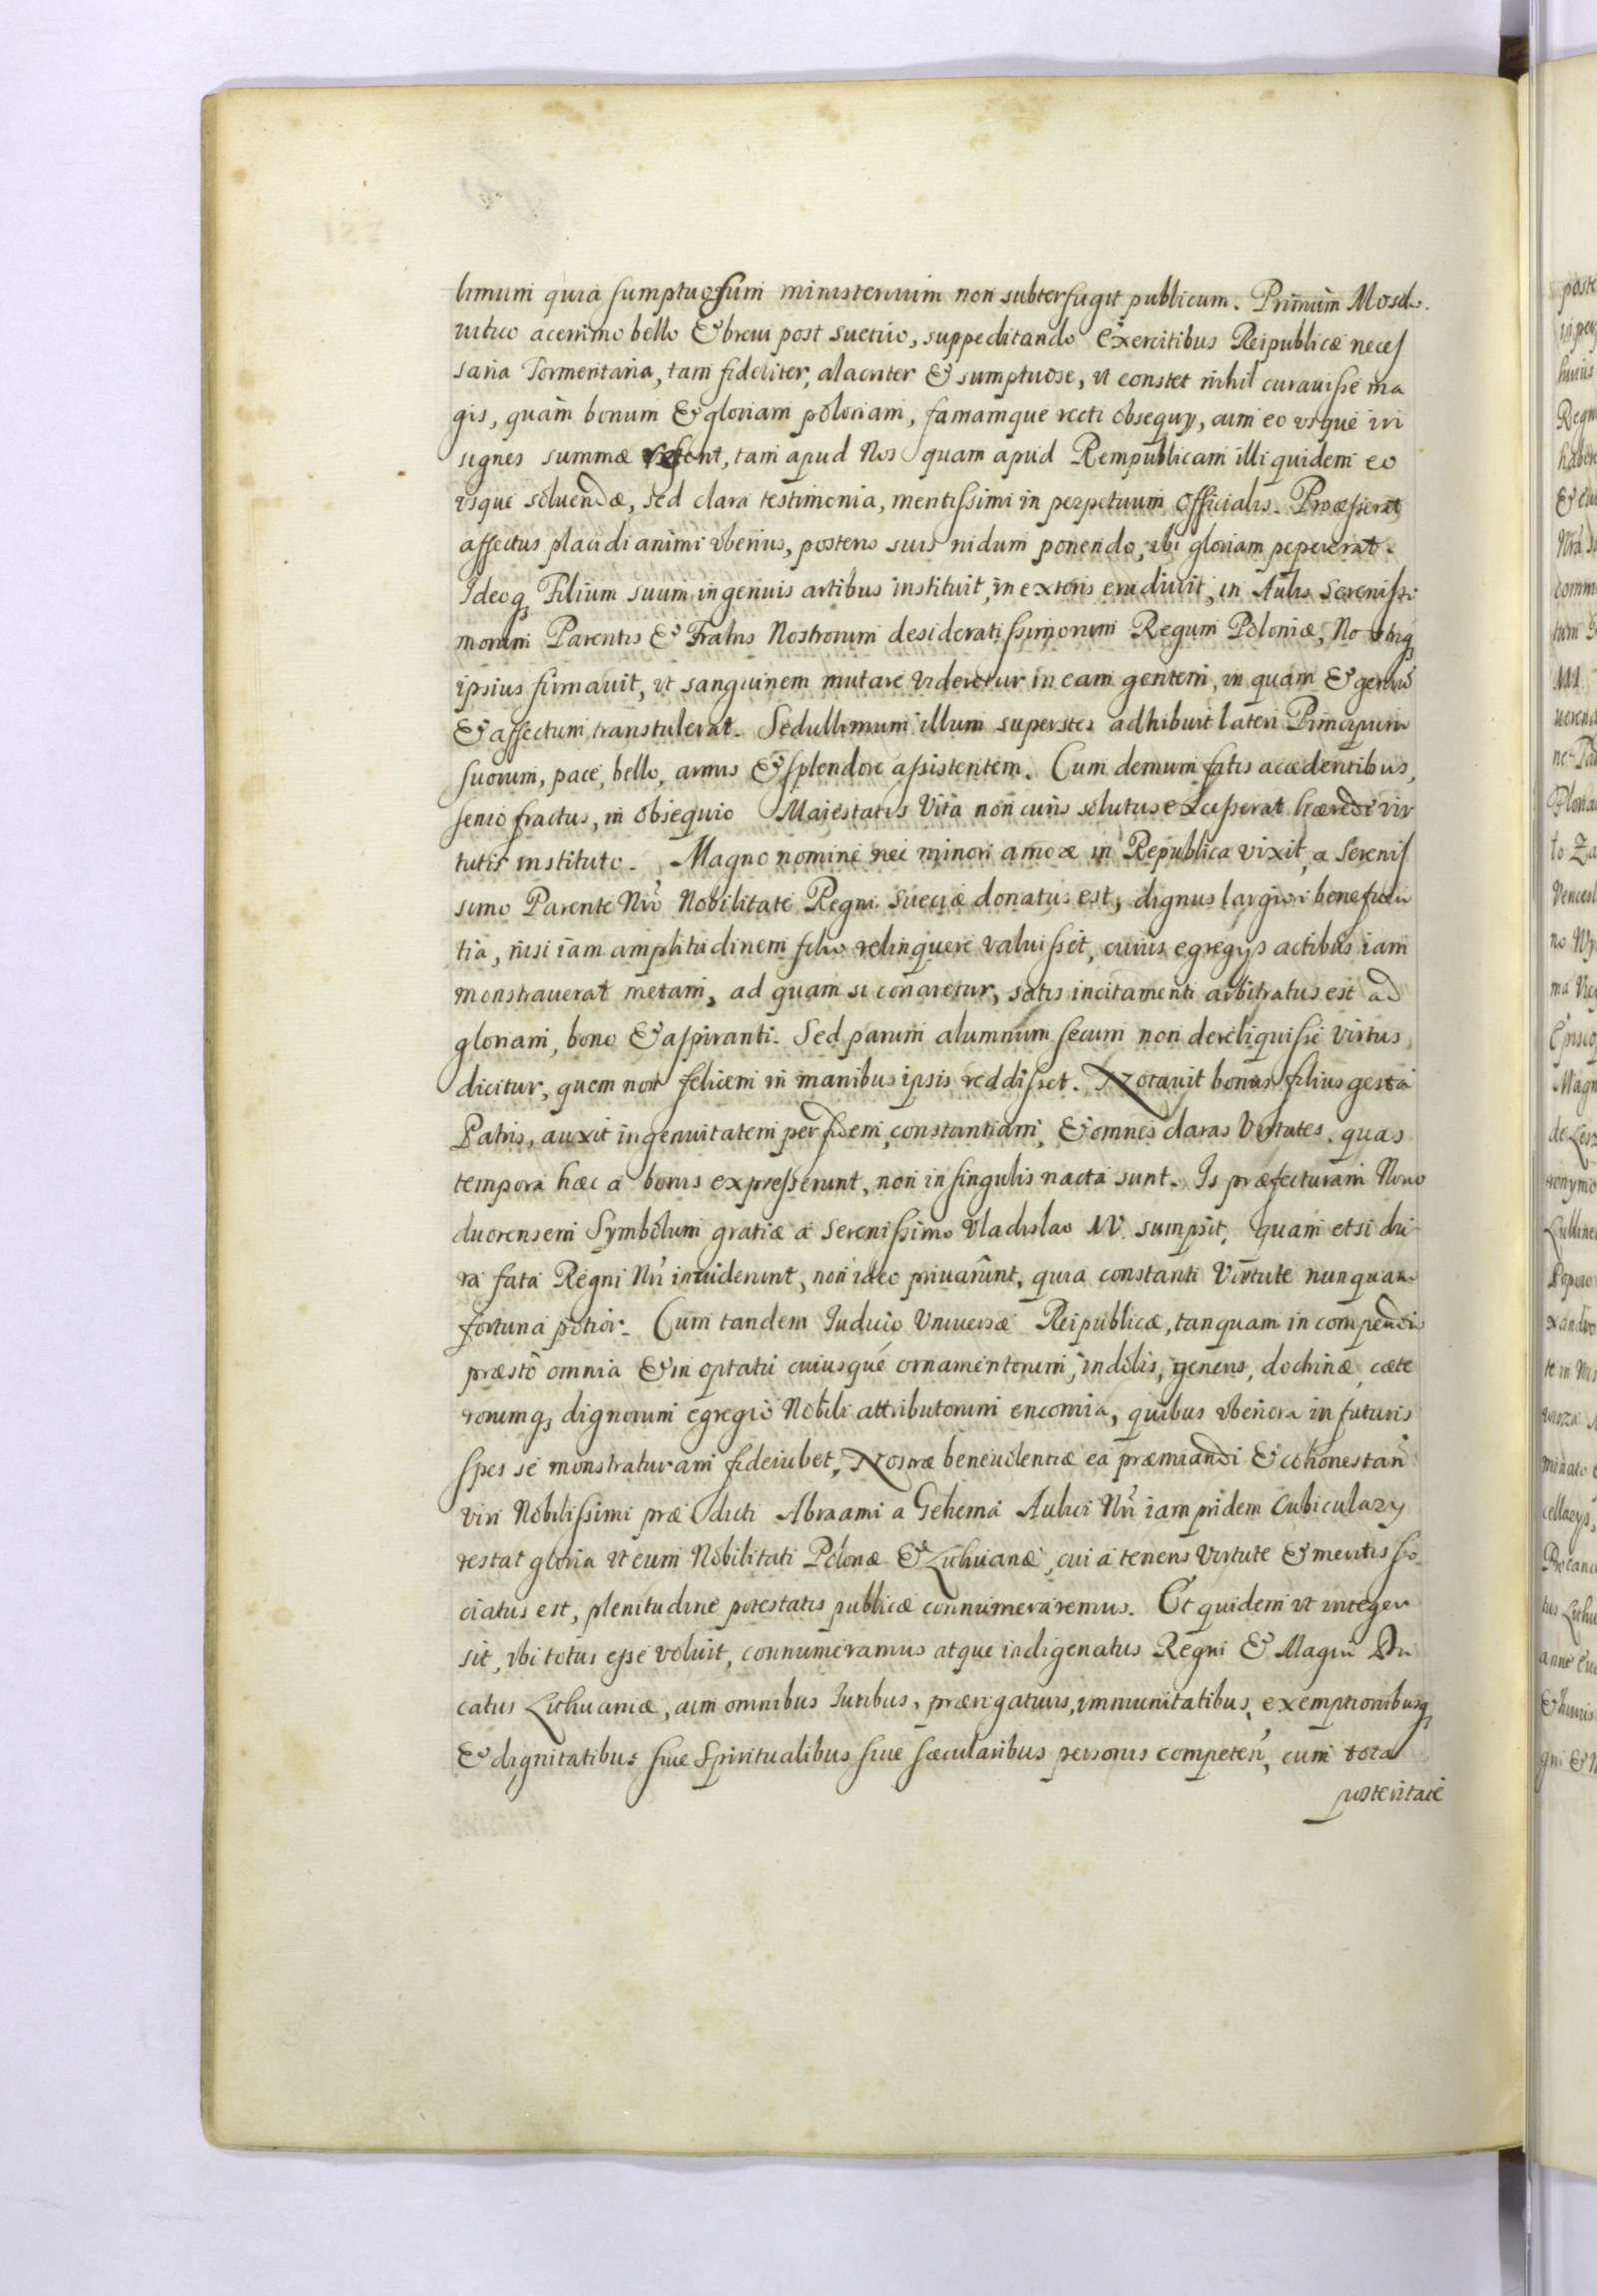 limum quia sumptuosum ministerium non subterfugit publicum. Primum Mosch.
uitico acerrimo bello & breui post suetico, suppeditando Exercitibus Reipublicæ neces
saria Tormentaria, tam fideliter, alacriter & sumptuose, vt constet nihil curauisse ma
gis, quam bonum & gloriam poloniam, famamque recti obsequÿ, cum eo vsque in
signes summæ restent, tam apud Nos quam apud Rempublicam illi quidem eo
vsque soluendæ, sed clara testimonia, meritissimi in perpetuum Officialis. Præsserat
affectus placidi animi vberius, posteris suis nidum ponendo, vbi gloriam pepererat.
Ideoq3 Filium suum ingenuis artibus instituit, in exteris erudiuit, in Aulis Serenissi
morum Parentis & Fratris Nostrorum desideratissimorum Regum Poloniæ, No striq3
ipsius firmauit, vt sanguinem mutare videretur in eam gentem, in quam & genus
& affectum transtulerat. Sedullimum illum superstes adhibuit lateri Principum
suorum, pace, bello, armis & splendore assistentem. Cum demum fatis accedentibus,
senio fractus, in obsequio Maiestatis Vita non curis solutus excesserat hærede vir
tutis instituto. Magno nomine nec minori amore in Republica vixit, a Serenis
simo Parente Nrō Nobilitate Regni Sueciæ donatus est, dignus largiori beneficen
tia, nisi iam amplitudinem filio relinquere valuisset, cuius egregÿs actibus iam
monstrauerat metam, ad quam si conaretur, satis incitamenti arbitratus est ad
gloriam, bono & aspiranti. Sed parum alumnum secum non dereliquisse virtus
dicitur, quem non felicem in manibus ipsis reddisset. Notauit bonus filius gesta
Patris, auxit ingenuitatem per fidem, constantiam, & omnes claras Virtutes, quas
tempora hæc a bonis expresserunt, non in singulis nacta sunt. Is præfecturam Nouo
duorensem Symbolum gratiæ a Serenissimo Vladislao IV. sumpsit, quam etsi du
ra fata Regni Nrī inuiderunt, non ideo priuarunt, quia constanti Virtute nunquam
fortuna potior. Cum tandem Iudicio Vniuersæ Reipublicæ, tanquam in compendio
præsto omnia & in optatu cuiusque ornamentorum, indolis, generis, doctrinæ, cæte
rorumq3 dignorum egregio Nobili attributorum encomia, quibus vberiora in futuris
spes se monstraturam fideiubet, Nostræ beneuolentiæ ea præmiandi & cohonestan̄
viri Nobilissimi præ dicti Abraami a Gehema Aulici Nrī iam pridem Cubicularÿ
restat gloria vt eum Nobilitati Polonæ & Lithuanæ, cui a teneris Virtute & meritis so
ciatus est, plenitudine potestatis publicæ connumeraremus. Et quidem vt integer
sit, vbi totus esse voluit, connumeramus atque indigenatus Regni & Magni Du
catus Lithuaniæ, cum omnibus Iuribus, prærogatiuis, immunitatibus, exemptionibusq3
& dignitatibus siue Spiritualibus siue sæcularibus personis competen̄, cum tota
posteritate